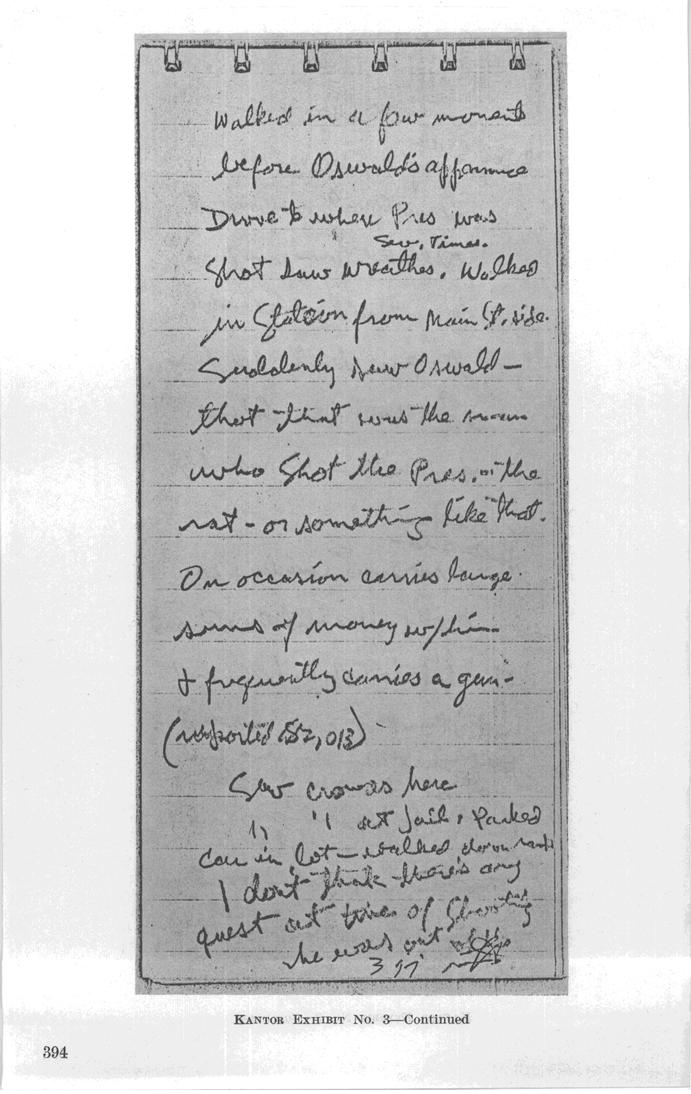 Walked in a few moments
before Oswald's apperance
Drove to where Pres was
Sev. Times.
Shot saw wreathes. Walked
in Station from Main St. side.
Suddenly saw Oswald —
that that was the man
who shot the Pres. or the
rat - or something like that.
On occasion carries large
sums of money w/him
& frequently carries a gun -
(reported $2,013)
Saw crowds here
" " at jail & Parked
car in lot — walked down ramp
I don't think there's any
quest at time of shooting
he was out
KANTOR EXHIBIT No. 3—Continued
394